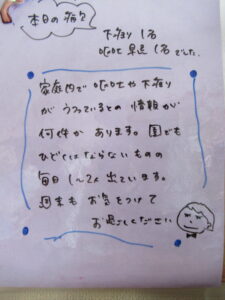 本日の病欠
下痢り 1名
嘔吐 早退 1名 でした。
家庭内で嘔吐や下痢り
がうつっているとの情報が
何件かあります。園でも
ひどくはならないものの
毎日 1~2人 出ています。
週末もお気をつけて
お過ごしください